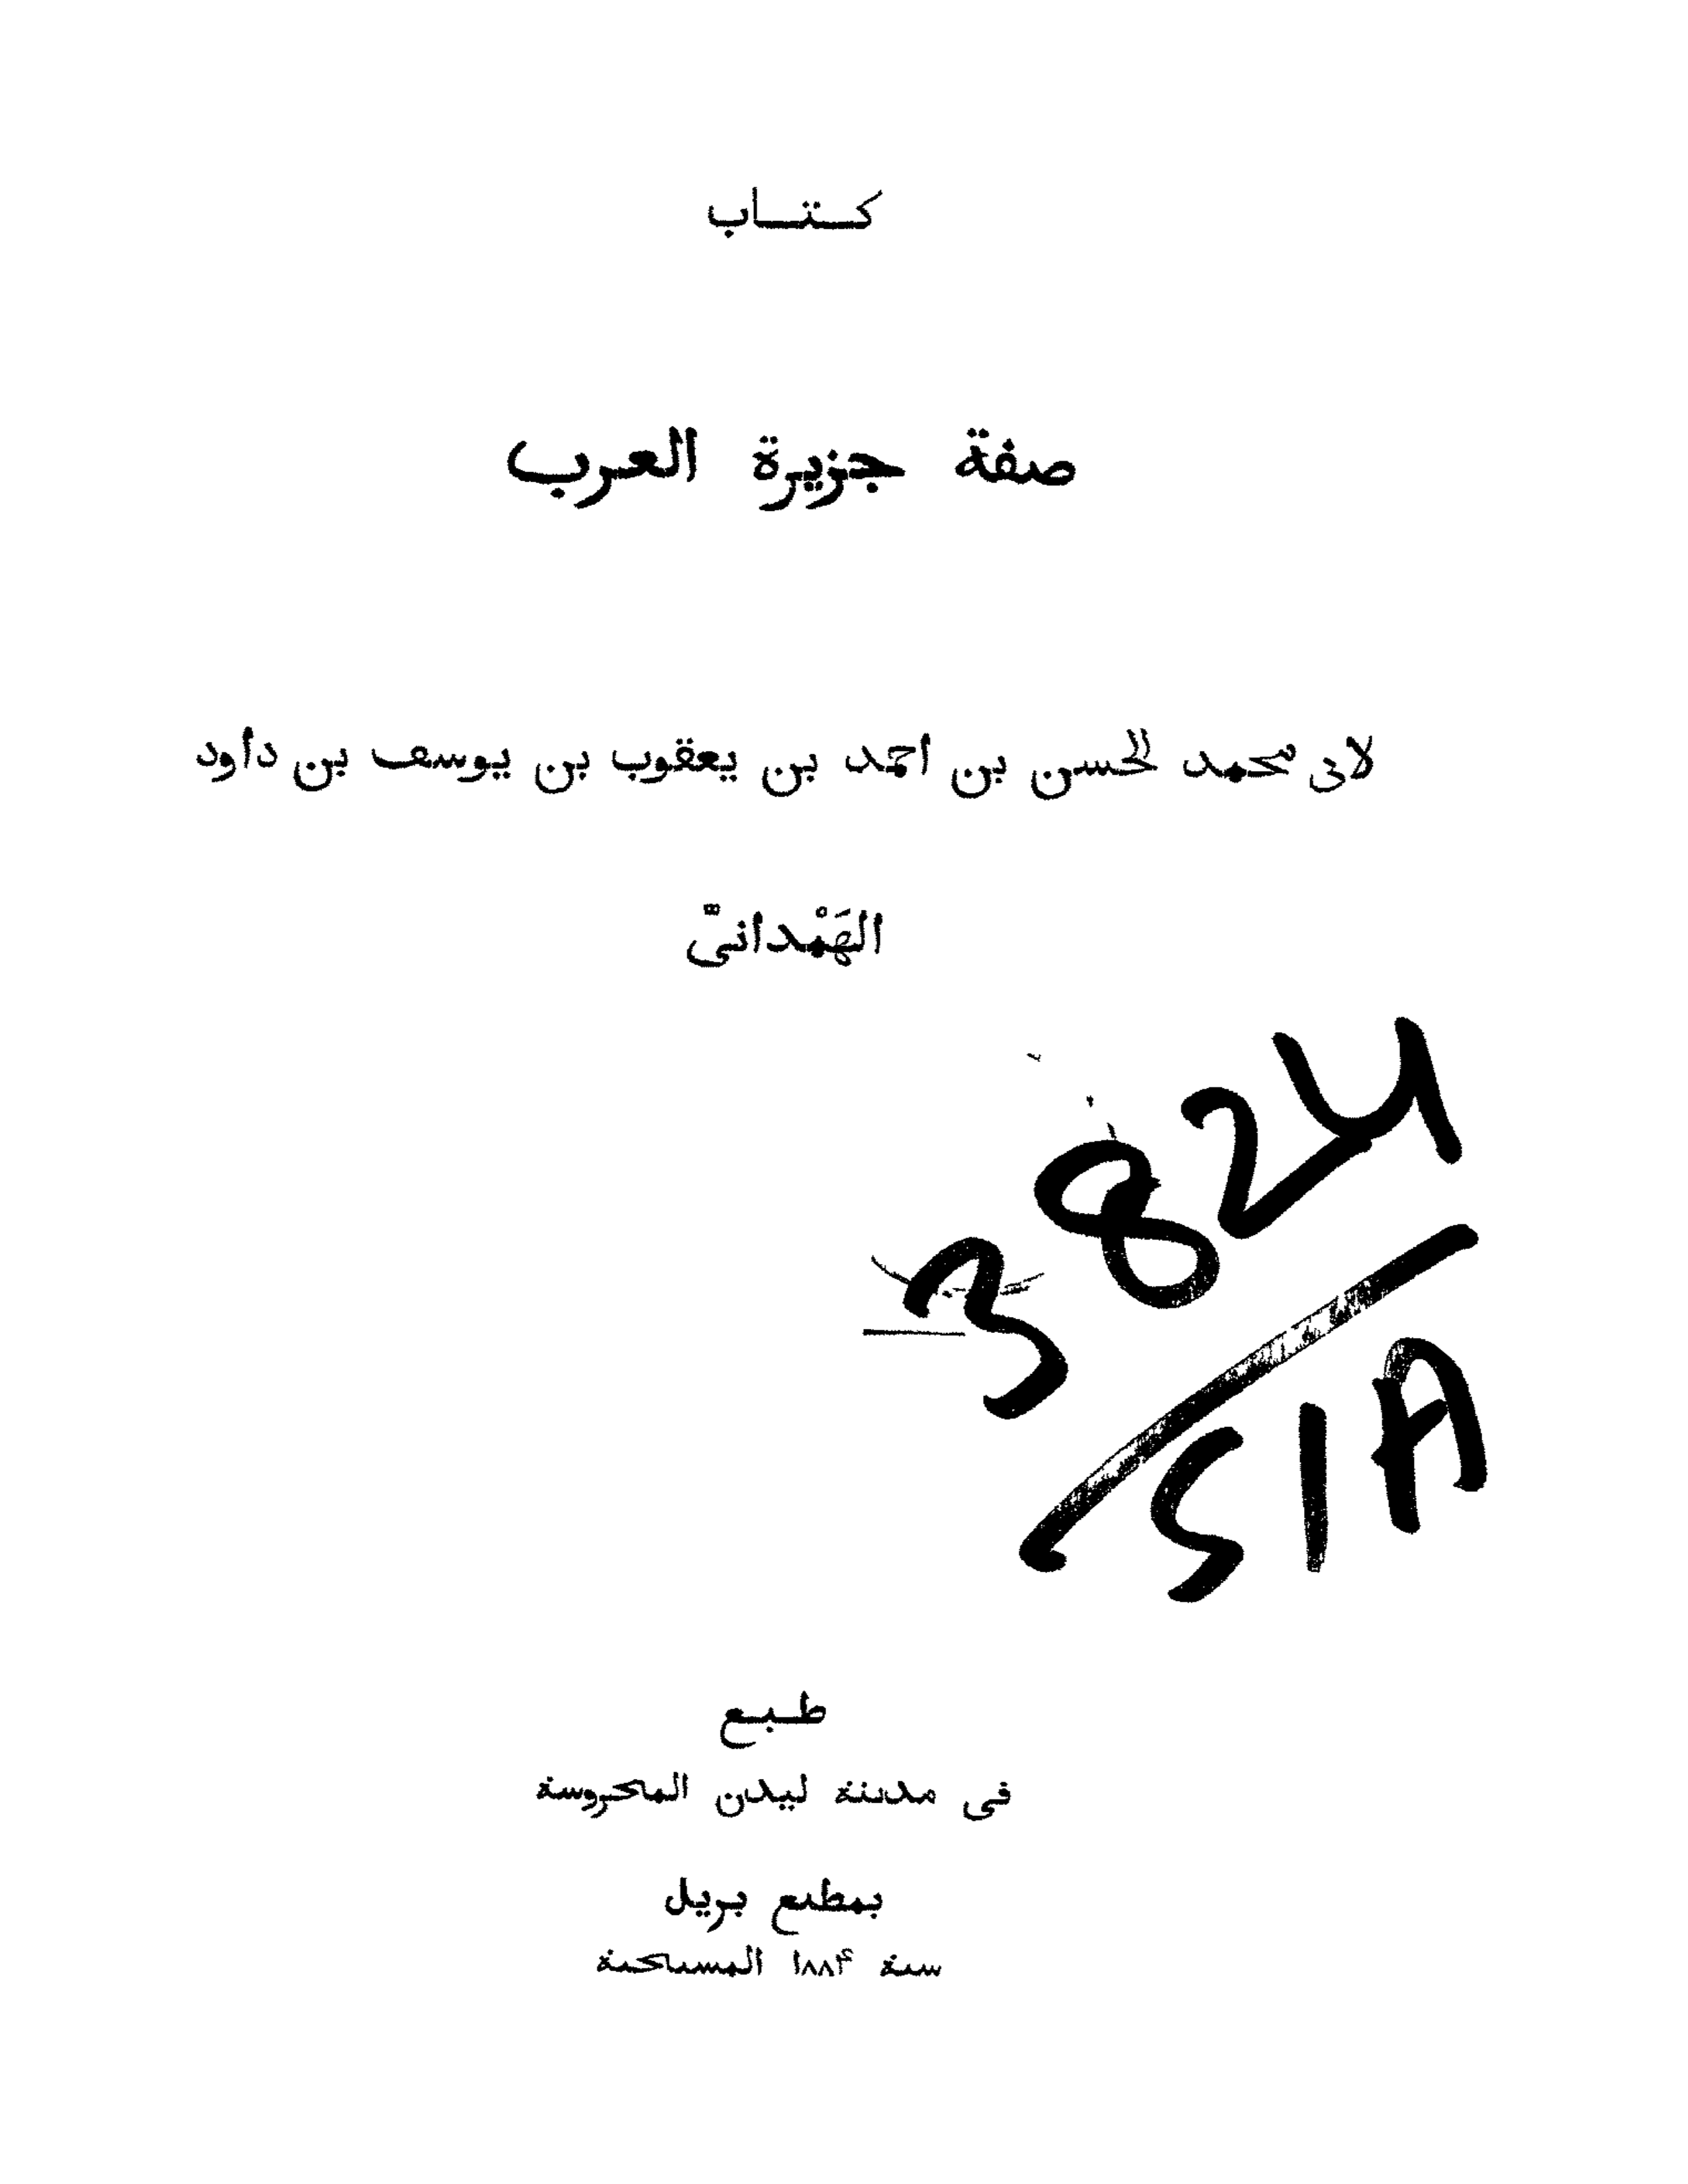 كتاب
صفة جزيرة العرب
لابى محمد الحسن بن احمد بن يعقوب بن يوسف بن داود
الهَمْدانىّ
3824
SIA
طبع
فى مدينة ليدن المحروسة
بمطبع بريل
سنة ١٨٨۴ المسيحية